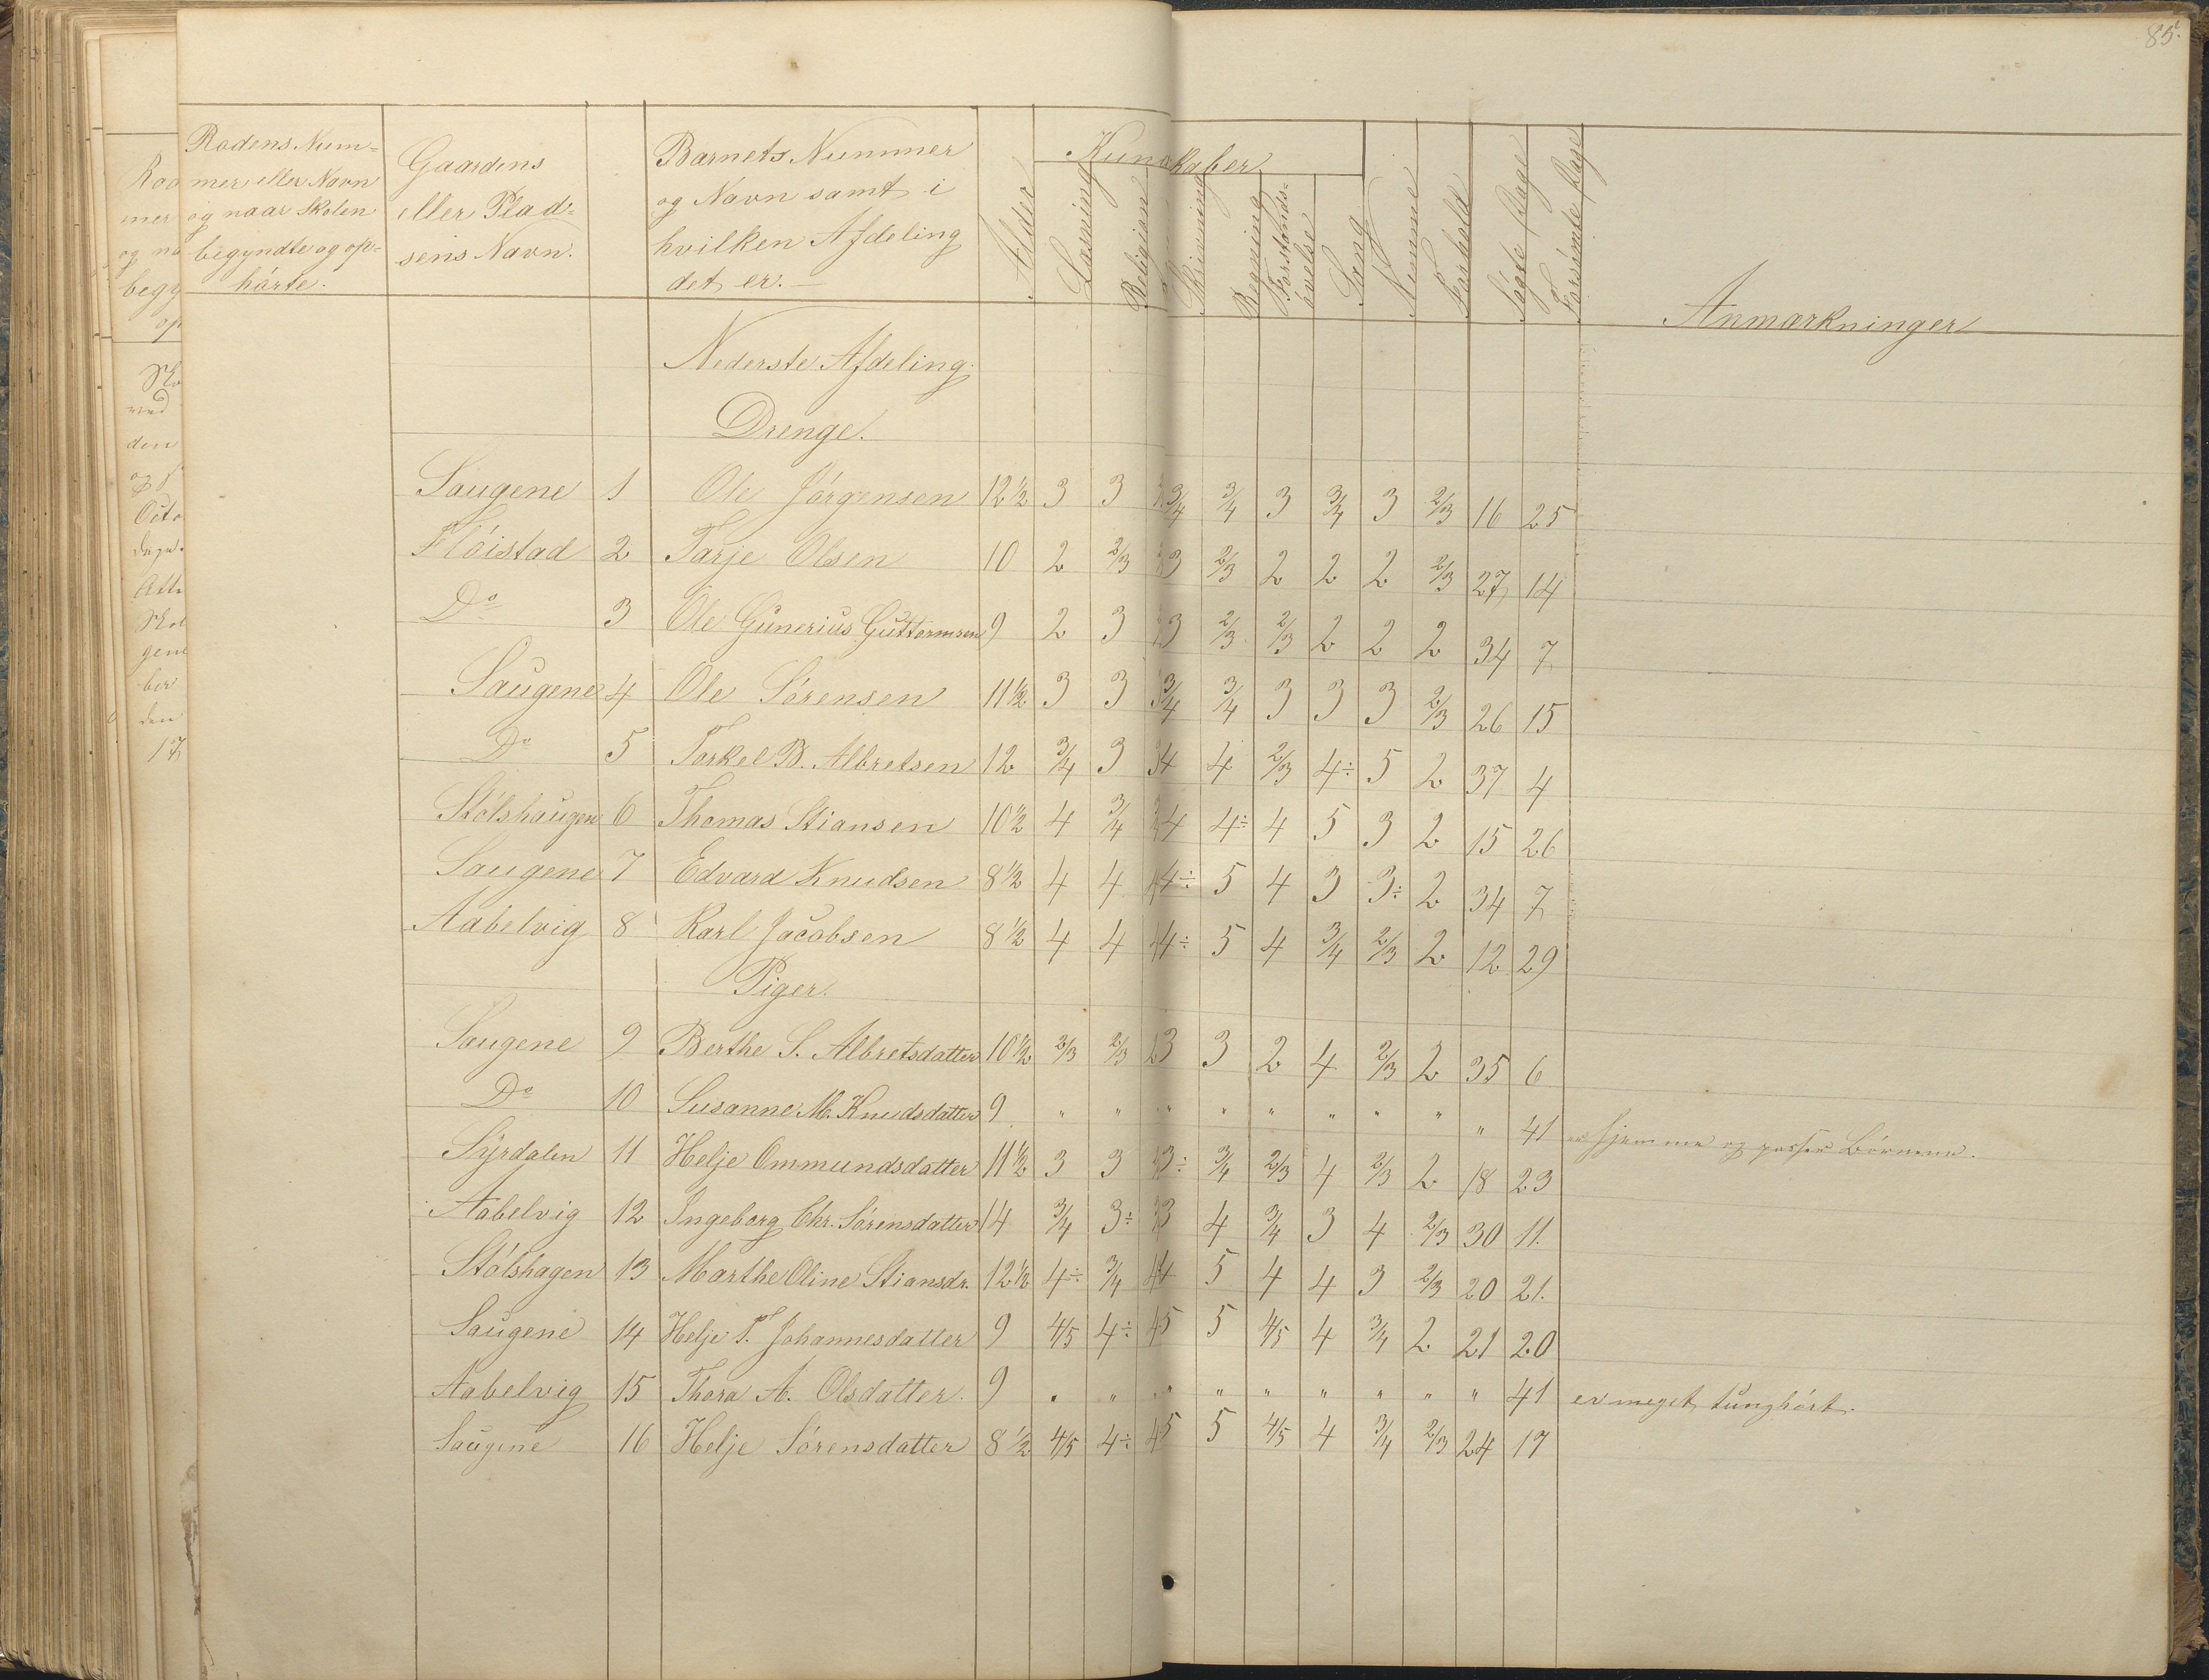 85
Rodens Num-
mer eller Navn
og naar Skolen
begyndte og op-
hørte.
Gaardens
eller Plad-
sens Navn.
Barnets Nummer
og Navn samt i
hvilken Afdeling
det er.
Alder
Kundskaber
Læsning
Religion
Skrivning
Regning
Forstands-
øvelse
Sang
Nemme
Forhold
Søgte Dage
Forsømte Dage
Anmærkninger
Nederste Afdeling.
Drenge.
Saugene 1 Ole Jørgensen 12½ 3 3 3/4 3/4 3 3/4 3 2/3 16 25
Fløistad 2 Tarje Olsen 10 2 2/3 3 2/3 2 2 2 2/3 27 14
Do 3 Ole Gunerius Guttormsen 9 2 3 3 2/3 2/3 2 2 2 34 7
Saugene 4 Ole Sørensen 11½ 3 3 3/4 3/4 3 3 3 2/3 26 15
Do 5 Torkel B. Albretsen 12 3/4 3 4 4 2/3 4÷ 5 2 37 4
Stølshaugen 6 Thomas Stiansen 10½ 4 3/4 4 4÷ 4 5 3 2 15 26
Saugene 7 Edvard Knudsen 8½ 4 4 4÷ 5 4 3 3÷ 2 34 7
Aabelvig 8 Karl Jacobsen 8½ 4 4 4÷ 5 4 3/4 2/3 2 12 29
Piger.
Saugene 9 Berthe S. Albretsdatter 10½ 2/3 2/3 3 3 2 4 2/3 2 35 6
Do 10 Susanne M. Knudsdatter 9 " " " " " " " " " 41 er hjemme og passer Børnene.
Syrdalen 11 Helje Ommundsdatter 11½ 3 3 3÷ 3/4 2/3 4 2/3 2 18 23
Aabelvig 12 Ingeborg Chr. Sørensdatter 14 3/4 3÷ 3 4 3/4 3 4 2/3 30 11.
Stølshagen 13 Marthe Oline Stiansdr. 12½ 4÷ 3/4 4 5 4 4 3 2/3 20 21.
Saugene 14 Helje T. Johannesdatter 9 4/5 4÷ 5 5 4/5 4 3/4 2 21 20
Aabelvig 15 Thora A. Olsdatter. 9 " " " " " " " " " 41 er meget tunghørt.
Saugene 16 Helje Sørensdatter 8½ 4/5 4÷ 5 5 4/5 4 3/4 2/3 24 17